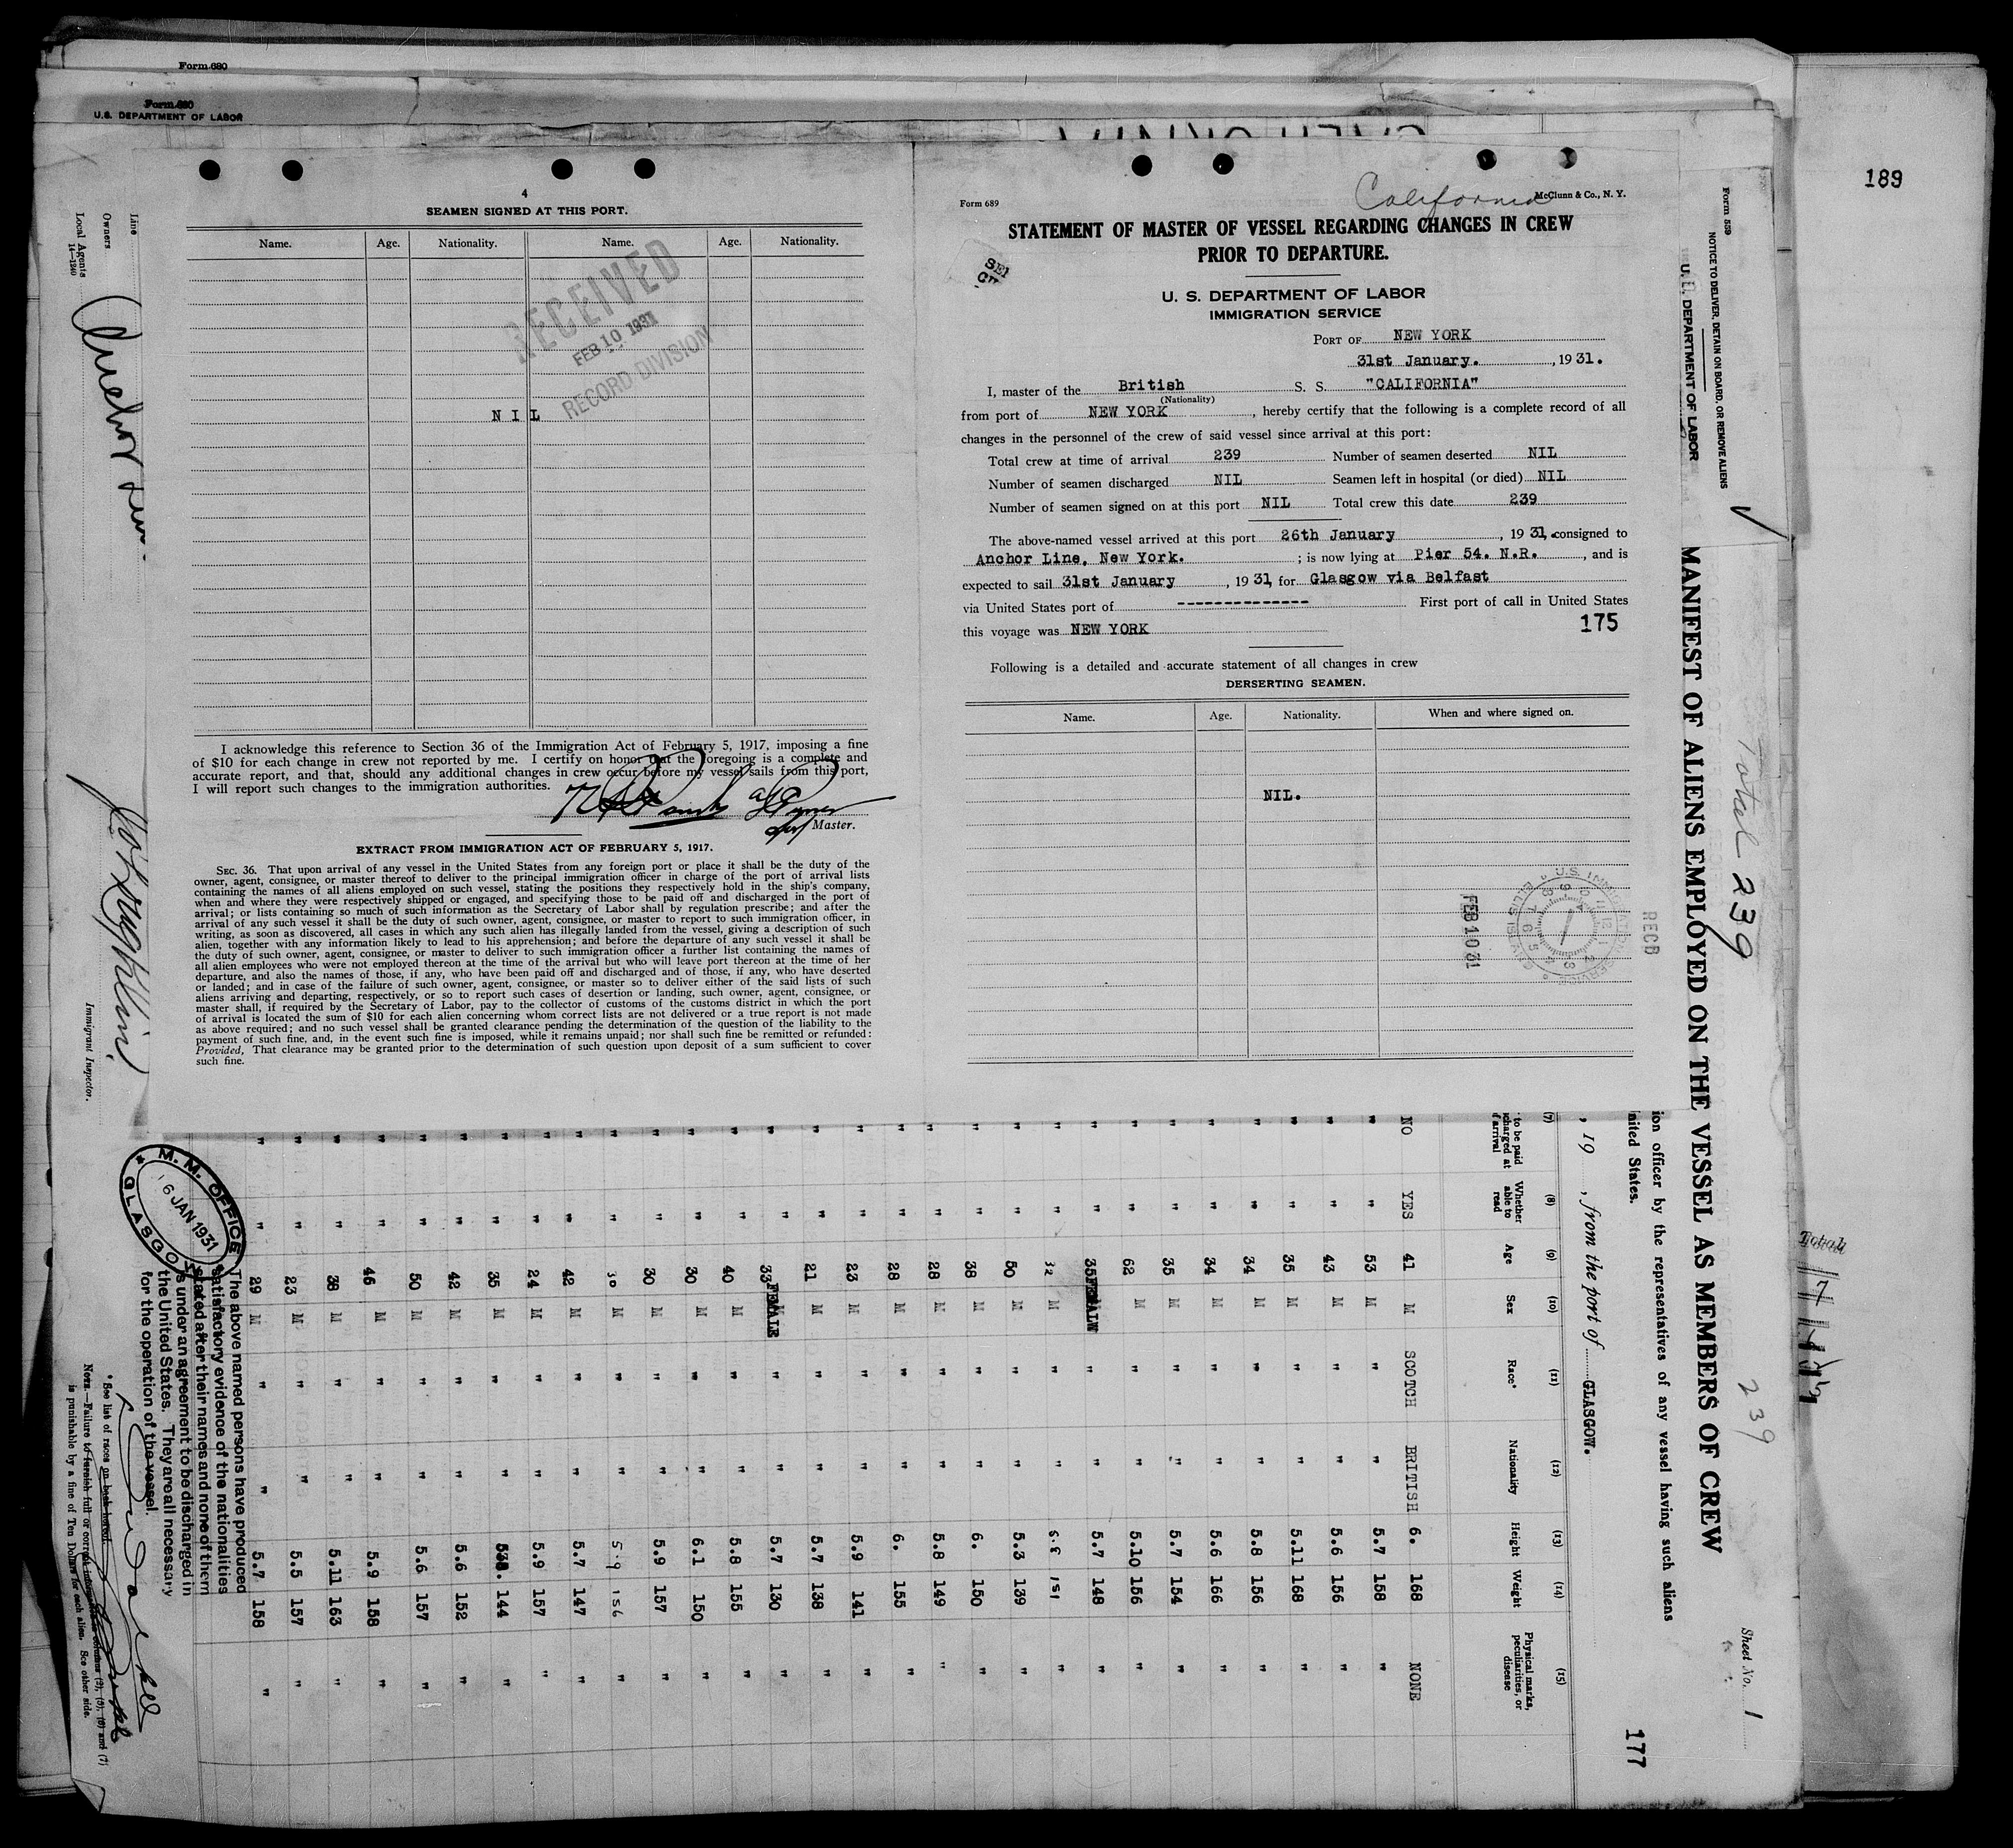 Form 680
Form 680
U.S. DEPARTMENT OF LABOR
189
4
SEAMEN SIGNED AT THIS PORT.
Name. Age. Nationality. Name. Age. Nationality.
RECEIVED
FEB 10 1931
RECORD DIVISION
N I L
I acknowledge this reference to Section 36 of the Immigration Act of February 5, 1917, imposing a fine
of $10 for each change in crew not reported by me. I certify on honor that the foregoing is a complete and
accurate report, and that, should any additional changes in crew occur before my vessel sails from this port,
I will report such changes to the immigration authorities.
Master.
EXTRACT FROM IMMIGRATION ACT OF FEBRUARY 5, 1917.
SEC. 36. That upon arrival of any vessel in the United States from any foreign port or place it shall be the duty of the
owner, agent, consignee, or master thereof to deliver to the principal immigration officer in charge of the port of arrival lists
containing the names of all aliens employed on such vessel, stating the positions they respectively hold in the ship's company,
when and where they were respectively shipped or engaged, and specifying those to be paid off and discharged in the port of
arrival; or lists containing so much of such information as the Secretary of Labor shall by regulation prescribe; and after the
arrival of any such vessel it shall be the duty of such owner, agent, consignee, or master to report to such immigration officer, in
writing, as soon as discovered, all cases in which any such alien has illegally landed from the vessel, giving a description of such
alien, together with any information likely to lead to his apprehension; and before the departure of any such vessel it shall be
the duty of such owner, agent, consignee, or master to deliver to such immigration officer a further list containing the names of
all alien employees who were not employed thereon at the time of the arrival but who will leave port thereon at the time of her
departure, and also the names of those, if any, who have been paid off and discharged and of those, if any, who have deserted
or landed; and in case of the failure of such owner, agent, consignee, or master so to deliver either of the said lists of such
aliens arriving and departing, respectively, or so to report such cases of desertion or landing, such owner, agent, consignee, or
master shall, if required by the Secretary of Labor, pay to the collector of customs of the customs district in which the port
of arrival is located the sum of $10 for each alien concerning whom correct lists are not delivered or a true report is not made
as above required; and no such vessel shall be granted clearance pending the determination of the question of the liability to the
payment of such fine, and, in the event such fine is imposed, while it remains unpaid; nor shall such fine be remitted or refunded:
Provided, That clearance may be granted prior to the determination of such question upon deposit of a sum sufficient to cover
such fine.
Form 689 California McClunn & Co., N. Y.
STATEMENT OF MASTER OF VESSEL REGARDING CHANGES IN CREW
PRIOR TO DEPARTURE.
U. S. DEPARTMENT OF LABOR
IMMIGRATION SERVICE
PORT OF NEW YORK
31st January. , 1931.
I, master of the British S. S. "CALIFORNIA"
(Nationality)
from port of NEW YORK , hereby certify that the following is a complete record of all
changes in the personnel of the crew of said vessel since arrival at this port:
Total crew at time of arrival 239 Number of seamen deserted NIL
Number of seamen discharged NIL Seamen left in hospital (or died) NIL
Number of seamen signed on at this port NIL Total crew this date 239
The above-named vessel arrived at this port 26th January , 1931, consigned to
Anchor Line, New York. ; is now lying at Pier 54. N.R. , and is
expected to sail 31st January , 1931, for Glasgow via Belfast
via United States port of -------------- First port of call in United States
this voyage was NEW YORK
175
Following is a detailed and accurate statement of all changes in crew
DERSERTING SEAMEN.
Name. Age. Nationality. When and where signed on.
NIL.
RECD
U.S. IMMIGRATION SERVICE
FEB 10 31
Line
Owners
Local Agents
14—1240
Anchor Line
Immigrant Inspector.
Form 559
NOTICE TO DELIVER, DETAIN ON BOARD, OR REMOVE ALIENS
U. S. DEPARTMENT OF LABOR
Total 239
239
Sheet No. 1
MANIFEST OF ALIENS EMPLOYED ON THE VESSEL AS MEMBERS OF CREW
ion officer by the representatives of any vessel having such aliens
nited States.
177
, 19 , from the port of GLASGOW.
(7) (8) (9) (10) (11) (12) (13) (14) (15)
to be paid
charged at
arrival
Whether able to read
Age
Sex
Race*
Nationality
Height
Weight
Physical marks, peculiarities, or disease
NO YES 41 M SCOTCH BRITISH 6. 168 NONE
" " 53 M " " 5.7 158 "
" " 43 M " " 5.6 156 "
" " 35 M " " 5.11 168 "
" " 34 M " " 5.8 156 "
" " 34 M " " 5.6 166 "
" " 35 M " " 5.7 154 "
" " 62 M " " 5.10 156 "
" " 35 FEMALW " " 5.7 148 "
" " 32 M " " 5.8 151 "
" " 50 M " " 5.3 139 "
" " 38 M " " 6. 150 "
" " 28 M " " 5.8 149 "
" " 28 M " " 6. 155 "
" " 23 M " " 5.9 141 "
" " 21 M " " 5.7 138 "
" " 33 FEMALE " " 5.7 130 "
" " 40 M " " 5.8 155 "
" " 30 M " " 6.1 150 "
" " 30 M " " 5.9 157 "
" " 30 M " " 5.9 156 "
" " 42 M " " 5.7 147 "
" " 24 M " " 5.9 157 "
" " 35 M " " 144 "
" " 42 M " " 5.6 152 "
" " 50 M " " 5.6 157 "
" " 46 M " " 5.9 158 "
" " 38 M " " 5.11 163 "
" " 23 M " " 5.5 157 "
" " 29 M " " 5.7 158 "
M. M. OFFICE
16 JAN 1931
GLASGOW
The above named persons have produced
satisfactory evidence of the nationalities
stated after their names and none of them
is under an agreement to be discharged in
the United States. They are all necessary
for the operation of the vessel.
* See list of races on back hereof.
NOTE.—Failure to furnish full or correct information columns (2), (5), (6) and (7)
is punishable by a fine of Ten Dollars for each alien. See other side.
Total
7